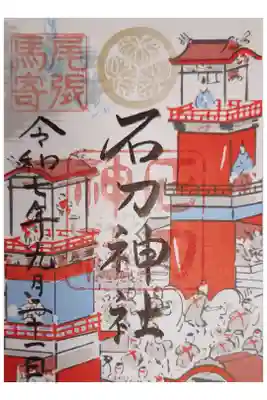 尾張
馬寄
石刀神社
石刀
神社
令和七年九月二十一日